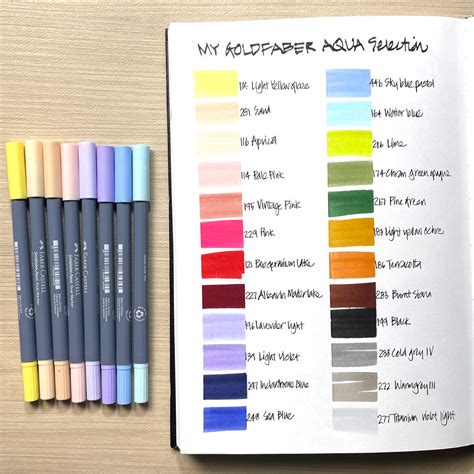 MY GOLDFABER AQUA Selection
105 Light Yellow glaze
281 Sand
116 Apricot
114 Pale Pink
195 Vintage Pink
229 Pink
121 Pale geranium Lake
227 Alizarin Madder lake
196 Lavender light
139 Light Violet
247 Indanthrene blue
248 Sea Blue
446 Sky blue pastel
164 Water blue
206 Lime
174 Chrom. green opaque
267 Pine Green
183 Light yellow ochre
186 Terracotta
283 Burnt Siena
199 Black
233 Cold grey IV
272 Warm grey III
277 Titanium violet light
FABER-CASTELL